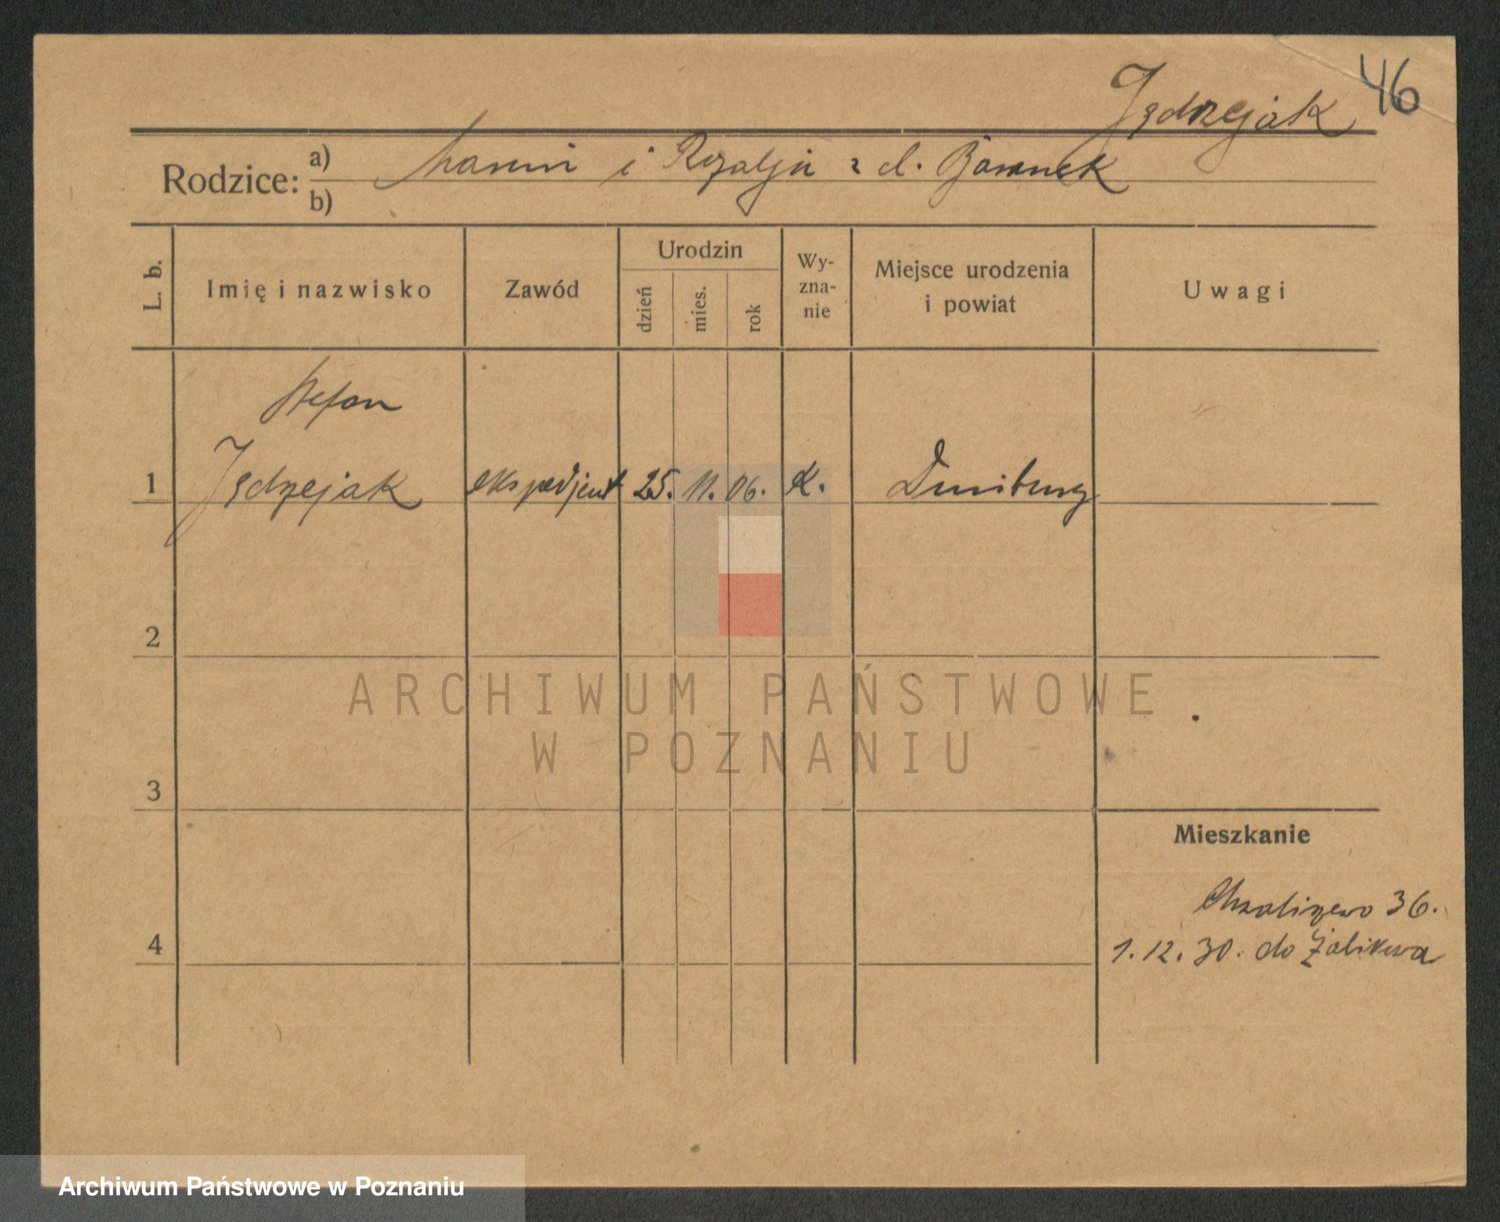 46
Jędrzejak
Rodzice: a) Marcin i Rozalja z d. Baranek
b)
L. b.
Imię i nazwisko
Zawód
Urodzin
dzień
mies.
rok
Wy-
zna-
nie
Miejsce urodzenia
i powiat
Uwagi
Stefan
1 Jędrzejak ekspedjent 25. 11. 06. k. Duisburg
2
ARCHIWUM PAŃSTWOWE
W POZNANIU
3
Mieszkanie
Chwaliszewo 36.
4
1.12.30. do Żabikowa
Archiwum Państwowe w Poznaniu